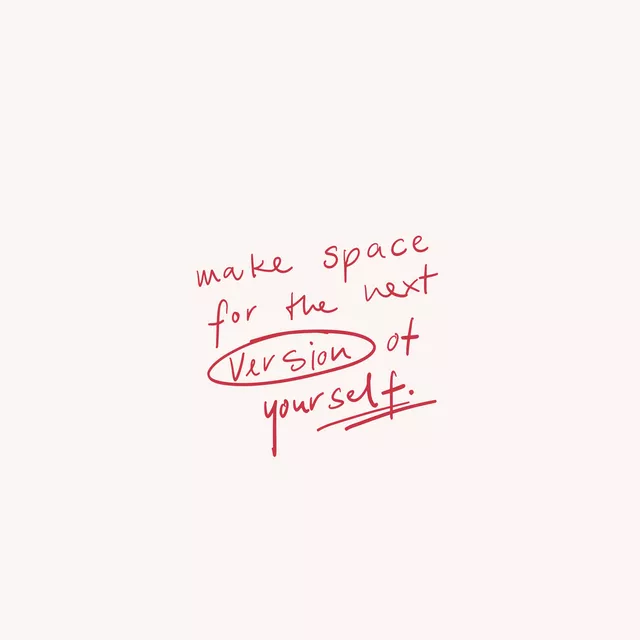 make space
for the next
version of
yourself.